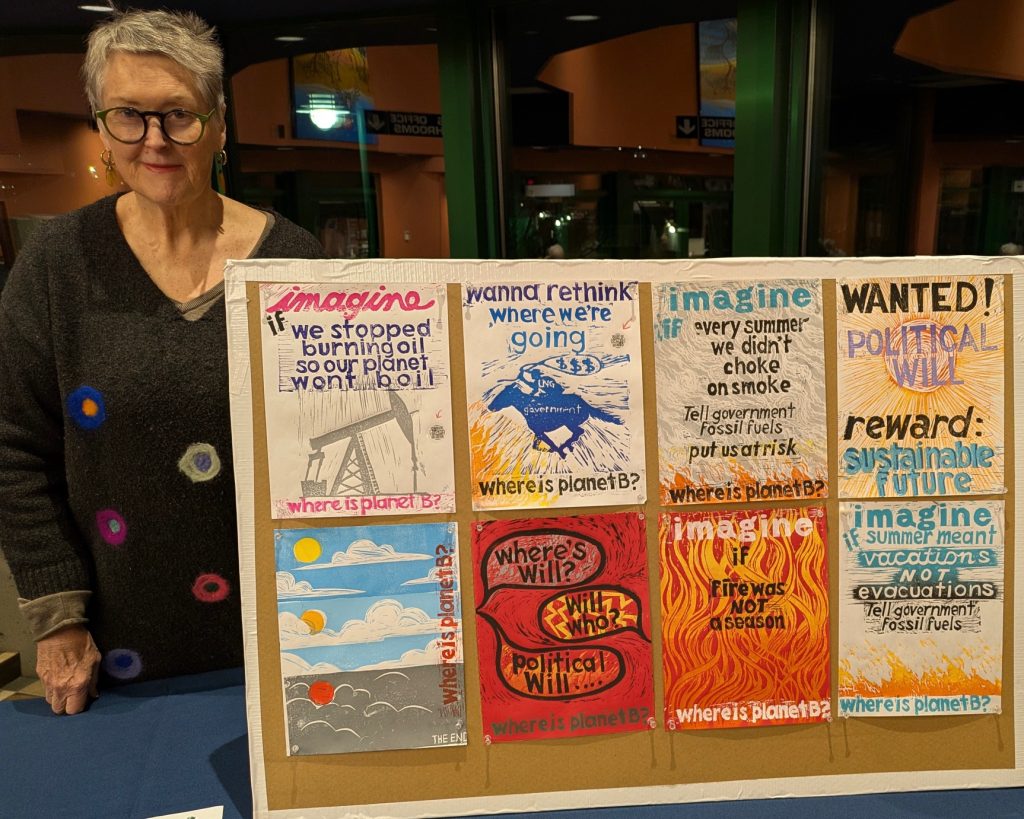 OFFICE
ROOMS
ROOMS
imagine
if we stopped
burning oil
so our planet
wont boil
where is planet B?
wanna rethink
where we're
going
$$$
LNG
government
where is planet B?
imagine
if every summer
we didn't
choke
on smoke
Tell government
fossil fuels
put us at risk
where is planet B?
WANTED!
POLITICAL
WILL
reward:
sustainable
future
where is planet B?
THE END
where's
Will?
Will
who?
political
Will....
where is planet B?
imagine
if
fire was
NOT
a season
where is planet B?
imagine
if summer meant
vacations
NOT
evacuations
Tell government
fossil fuels
where is planet B?